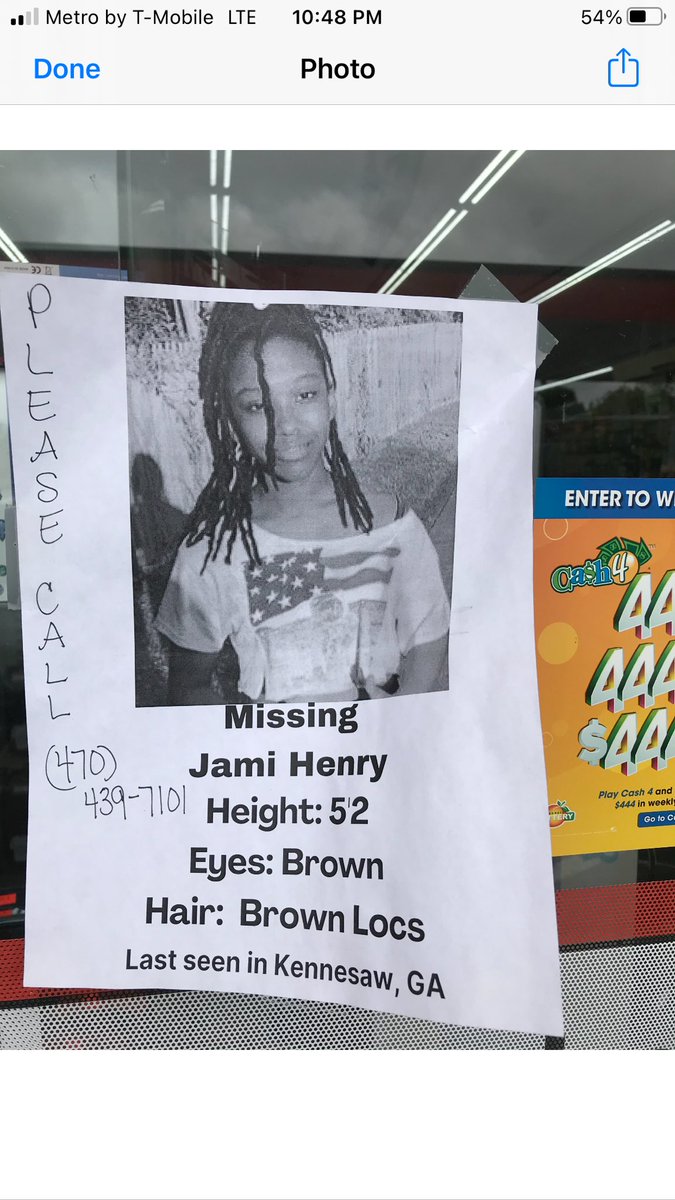 Metro by T-Mobile LTE 10:48 PM 54%
Done Photo
PLEASE CALL
(470)
439-7101
Missing
Jami Henry
Height: 5'2
Eyes: Brown
Hair: Brown Locs
Last seen in Kennesaw, GA
ENTER TO
Cash 4
44
444
$444
Play Cash 4 and
$444 in weekly
Go to